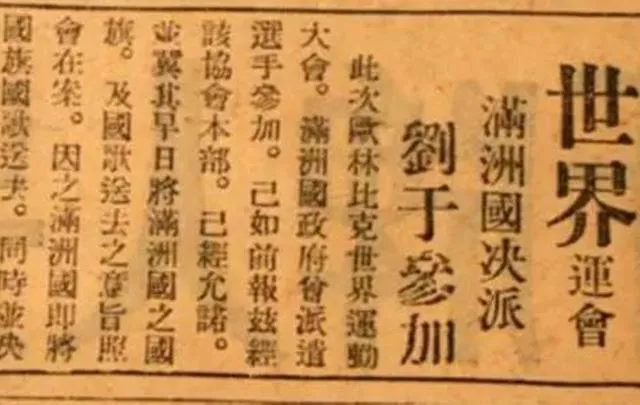 世界運會
滿洲國决派
劉于參加
此次歐林比克世界運動
大會。滿洲國政府會派遣
選手參加。己如前報茲經
該協會本部。己經允諾。
並翼其早日將滿洲國之國
旗。及國歌送去之意旨照
會在案。因之滿洲國即將
國旗國歌送去。同時並决